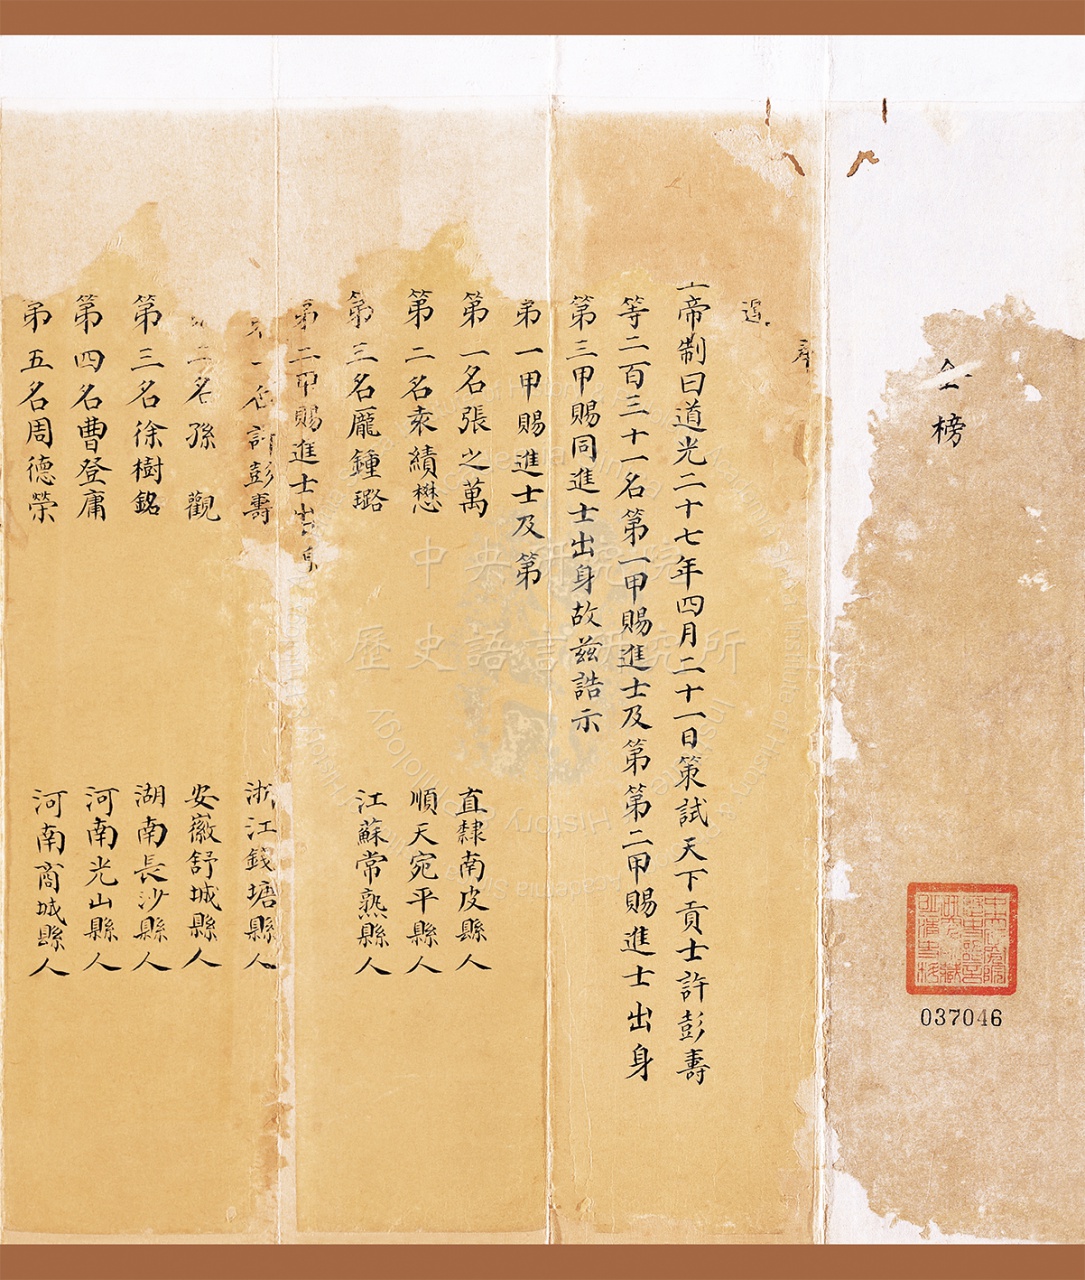 金榜
奉
皇帝制曰道光二十七年四月二十一日策試天下貢士許彭壽
等二百三十一名第一甲賜進士及第第二甲賜進士出身
第三甲賜同進士出身故茲誥示
第一甲賜進士及第
第一名張之萬 直隸南皮縣人
第二名袁績懋 順天宛平縣人
第三名龐鍾璐 江蘇常熟縣人
第二甲賜進士出身
第一名許彭壽 浙江錢塘縣人
第二名孫 觀 安徽舒城縣人
第三名徐樹銘 湖南長沙縣人
第四名曹登庸 河南光山縣人
第五名周德榮 河南商城縣人
037046
中央研究院
歷史語言研究所